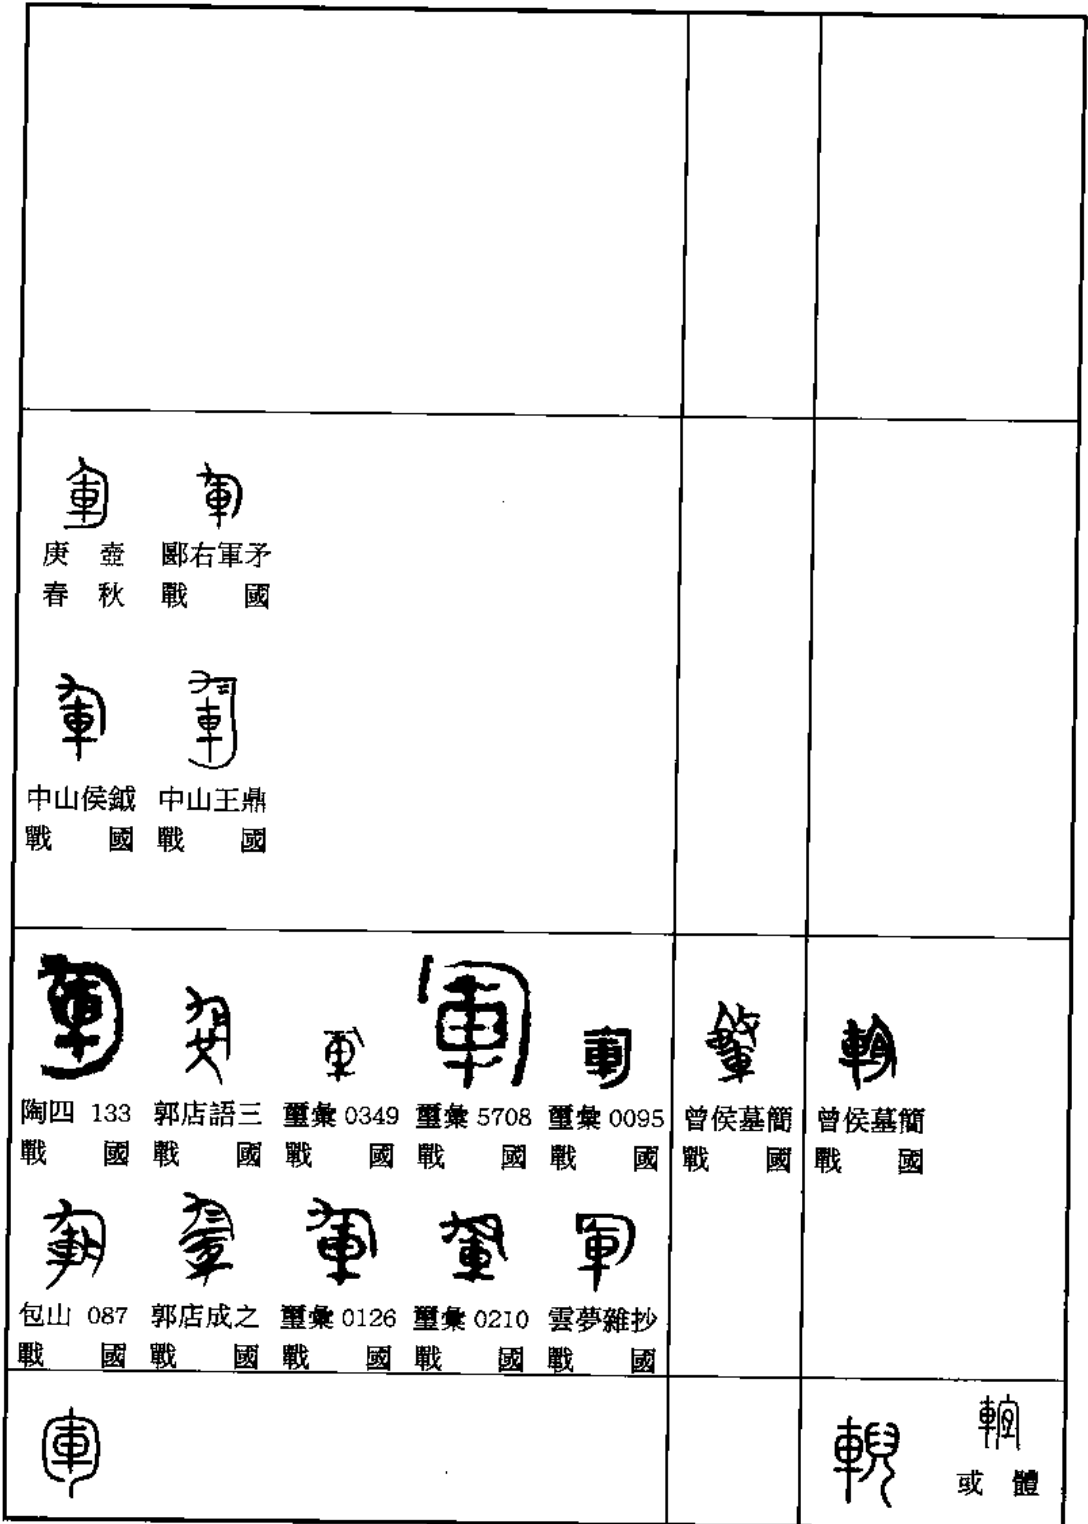 庚壺 郾右軍矛
春秋 戰國
中山侯鉞 中山王鼎
戰國 戰國
陶四 133 郭店語三 璽彙 0349 璽彙 5708 璽彙 0095 曾侯墓簡 曾侯墓簡
戰國 戰國 戰國 戰國 戰國 戰國 戰國
包山 087 郭店成之 璽彙 0126 璽彙 0210 雲夢雜抄
戰國 戰國 戰國 戰國 戰國
或體